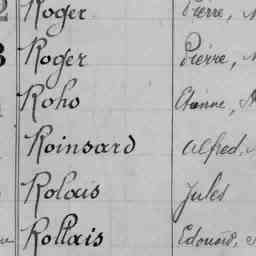 Roger Pierre,
Roger Pierre,
Roho Etienne,
Roinsard Alfred,
Rolais Jules
Rollais Edouard,